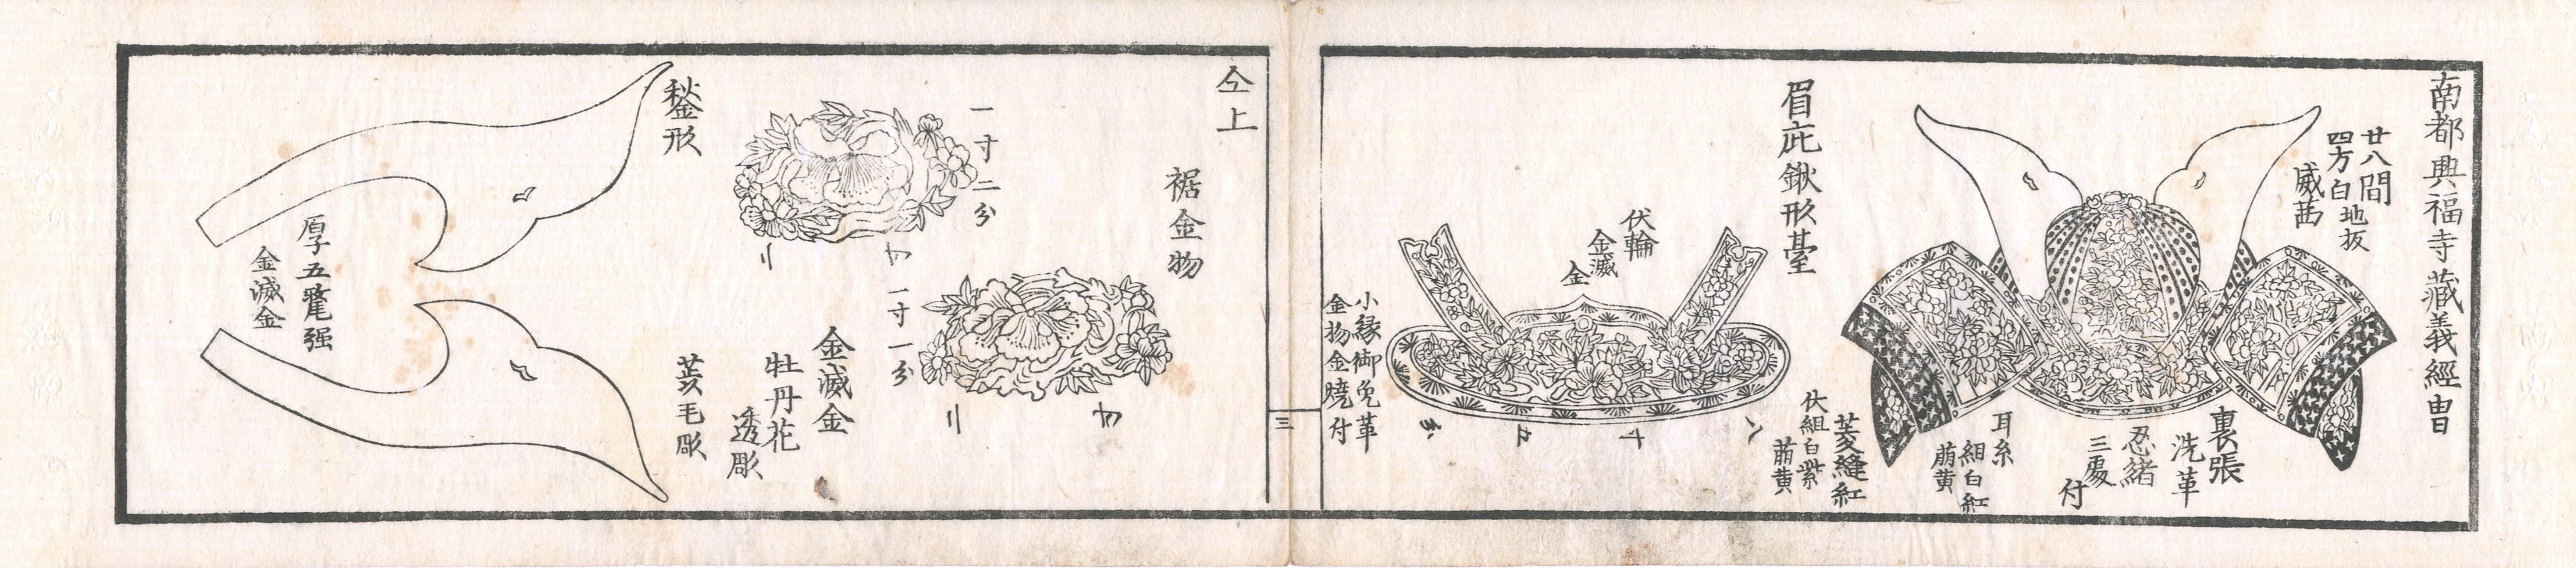 南都興福寺藏義經冑
廿八間
四方白地板
威茜
裏張
洗革
忍緒
三處付
耳糸
組白紅
萠黄
菱縫紅
伏組白紫
萠黄
眉庇鍬形臺
伏輪
金滅
金
小縁御免革
金物金燒付
三
仝上
裾金物
一寸二分
一寸一分
金滅金
牡丹花
透彫
鍬形
芰毛彫
厚子五毫强
金滅金